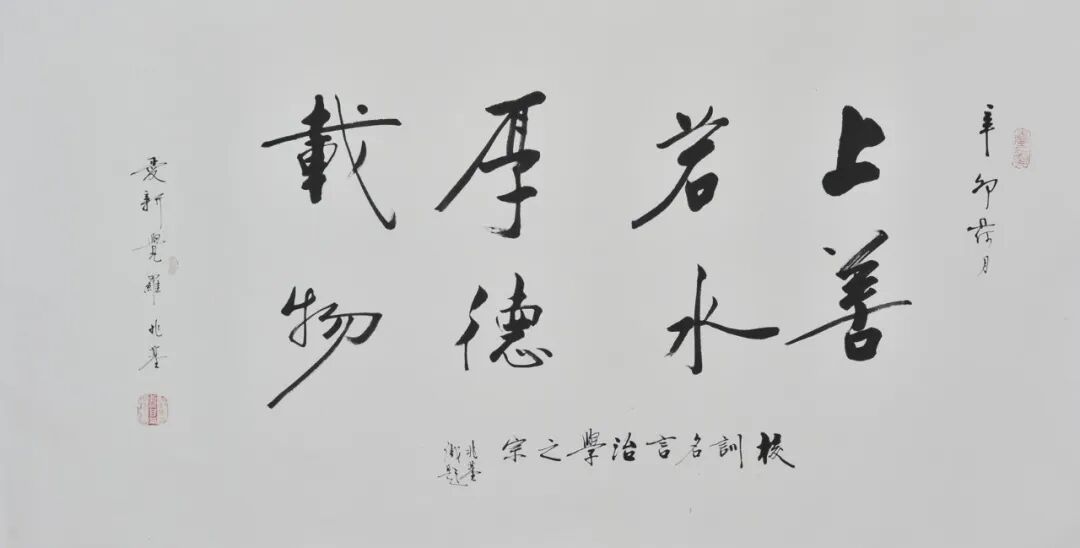 辛卯荷月
上善
若水
厚德
載物
校訓名言治學之宗
兆基
愛新覺羅兆基